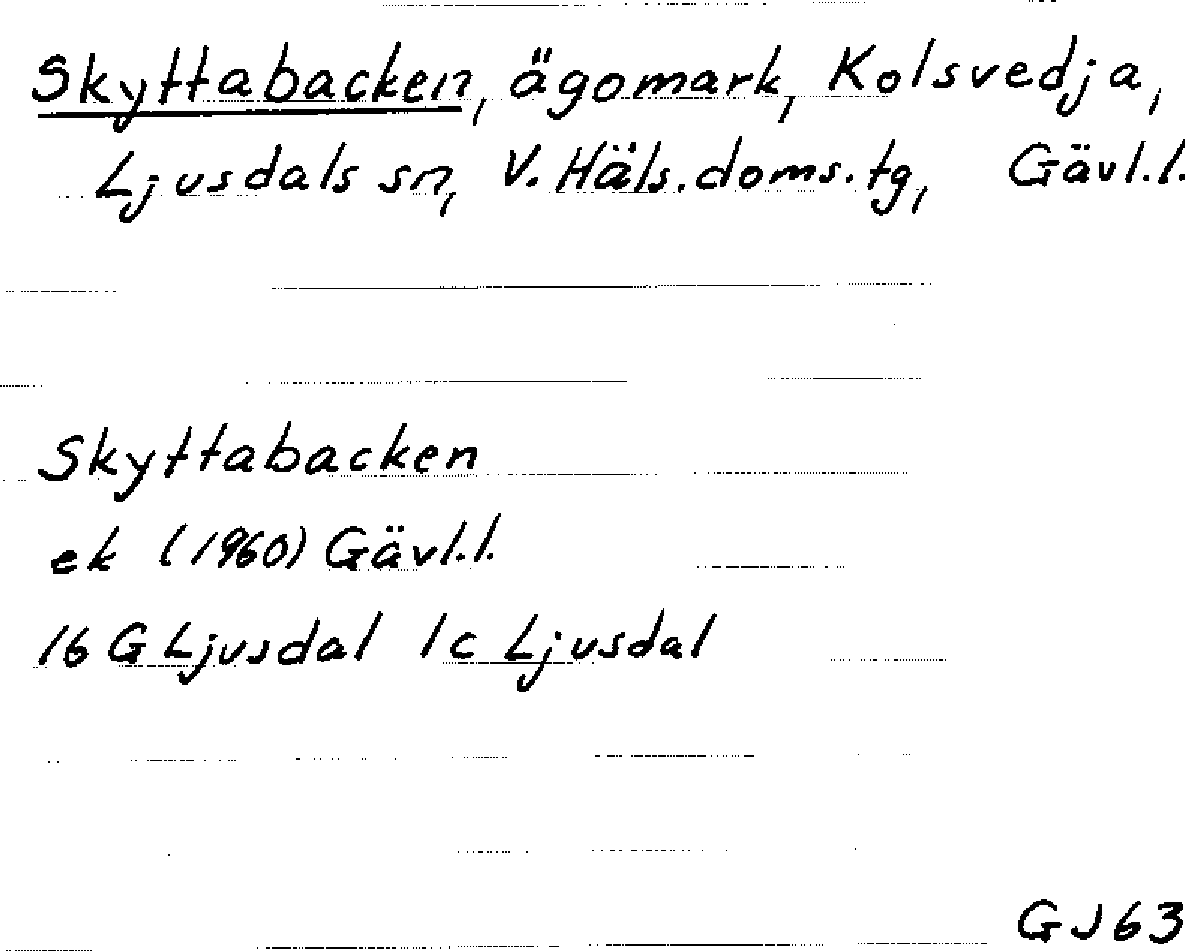 Skyttabacken, ägomark, Kolsvedja,
Ljusdals sn, V. Häls. doms. tg, Gävl. l.
Skyttabacken
ek (1960) Gävl. l.
16 G Ljusdal 1c Ljusdal
GJ63